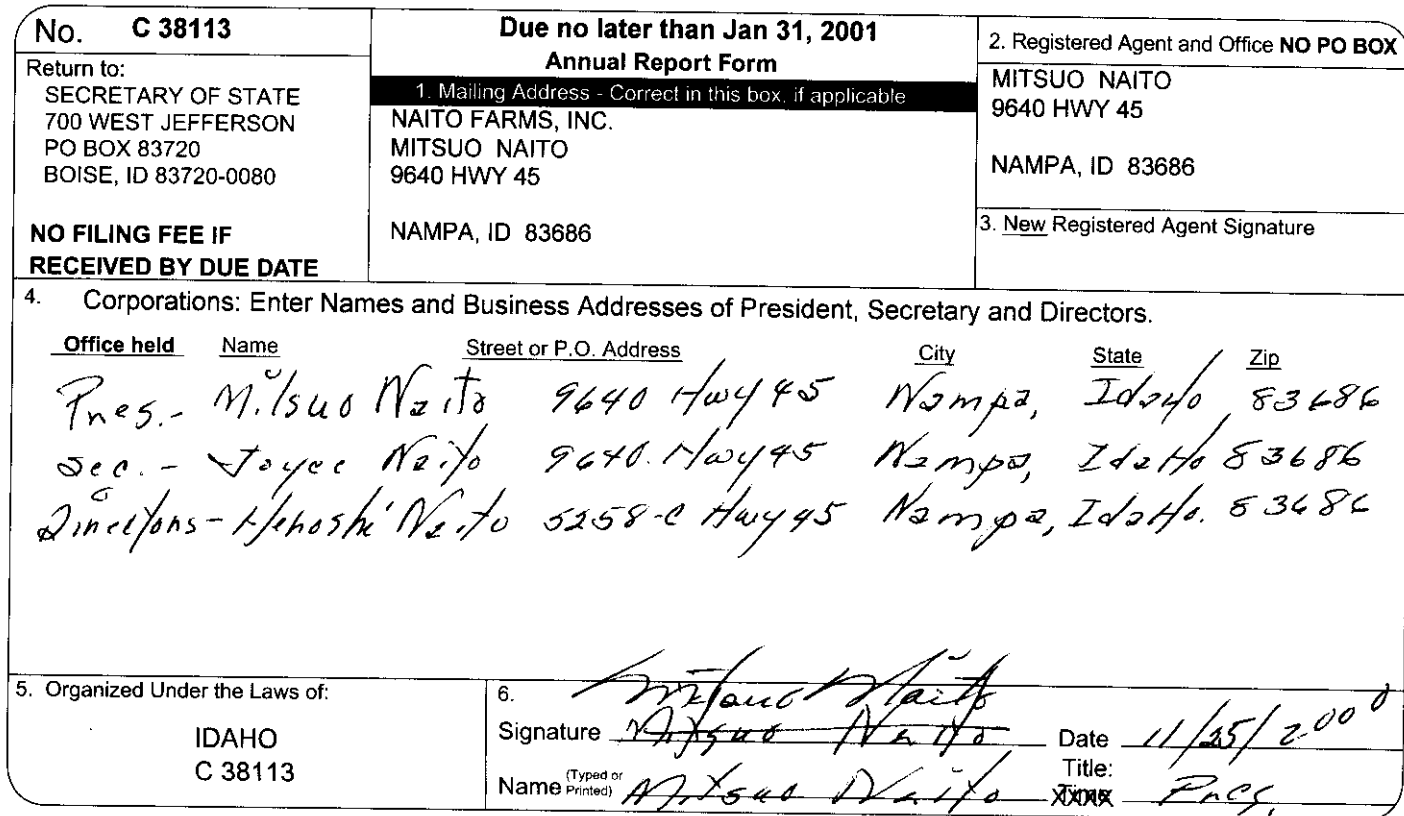 No. C 38113
Return to:
SECRETARY OF STATE
700 WEST JEFFERSON
PO BOX 83720
BOISE, ID 83720-0080
NO FILING FEE IF
RECEIVED BY DUE DATE
Due no later than Jan 31, 2001
Annual Report Form
1. Mailing Address - Correct in this box, if applicable
NAITO FARMS, INC.
MITSUO NAITO
9640 HWY 45
NAMPA, ID 83686
2. Registered Agent and Office NO PO BOX
MITSUO NAITO
9640 HWY 45
NAMPA, ID 83686
3. New Registered Agent Signature
4. Corporations: Enter Names and Business Addresses of President, Secretary and Directors.
Office held Name Street or P.O. Address City State Zip
Pres. - Mitsuo Naito 9640 Hwy 45 Nampa, Idaho 83686
Sec. - Joyce Naito 9640 Hwy 45 Nampa, Idaho 83686
Directors - Naito 5258-C Hwy 45 Nampa, Idaho. 83686
5. Organized Under the Laws of:
IDAHO
C 38113
6. Mitsuo Naito
Signature Mitsuo Naito Date 11/25/2000
Name (Typed or Printed) Mitsuo Naito Title: Pres.